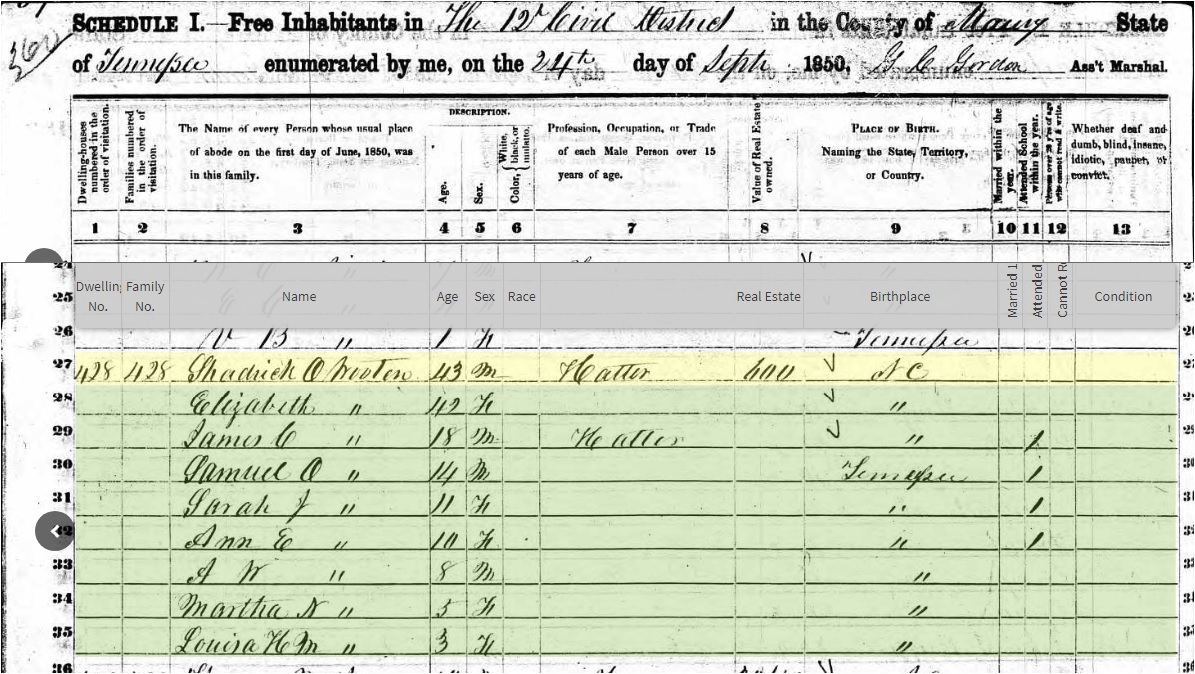 SCHEDULE I.—Free Inhabitants in The 12th Civil District in the County of Maury State
of Tennessee enumerated by me, on the 24th day of Septr 1850, G C Gordon Ass't Marshal.
Dwelling-houses numbered in the order of visitation.
Families numbered in the order of visitation.
The Name of every Person whose usual place of abode on the first day of June, 1850, was in this family.
DESCRIPTION.
Age.
Sex.
Color, { White, black, or mulatto.
Profession, Occupation, or Trade of each Male Person over 15 years of age.
Value of Real Estate owned.
PLACE OF BIRTH. Naming the State, Territory, or Country.
Married within the year.
Attended School within the year.
Persons over 20 y'rs of age who cannot read & write.
Whether deaf and dumb, blind, insane, idiotic, pauper, or convict.
1 2 3 4 5 6 7 8 9 10 11 12 13
Dwelling No. Family No. Name Age Sex Race Real Estate Birthplace Married Attended Cannot Condition
25
26 V B " 1 F Tennessee
27 428 428 Shadrick O Wooten 43 M Hatter 600 N C
28 Elizabeth " 42 F "
29 James C " 18 M Hatter " 1
30 Samuel O " 14 M Tennessee 1
31 Sarah J " 11 F " 1
32 Ann E " 10 F " 1
33 A W " 8 M "
34 Martha N " 5 F "
35 Louisa H M " 3 F "
36